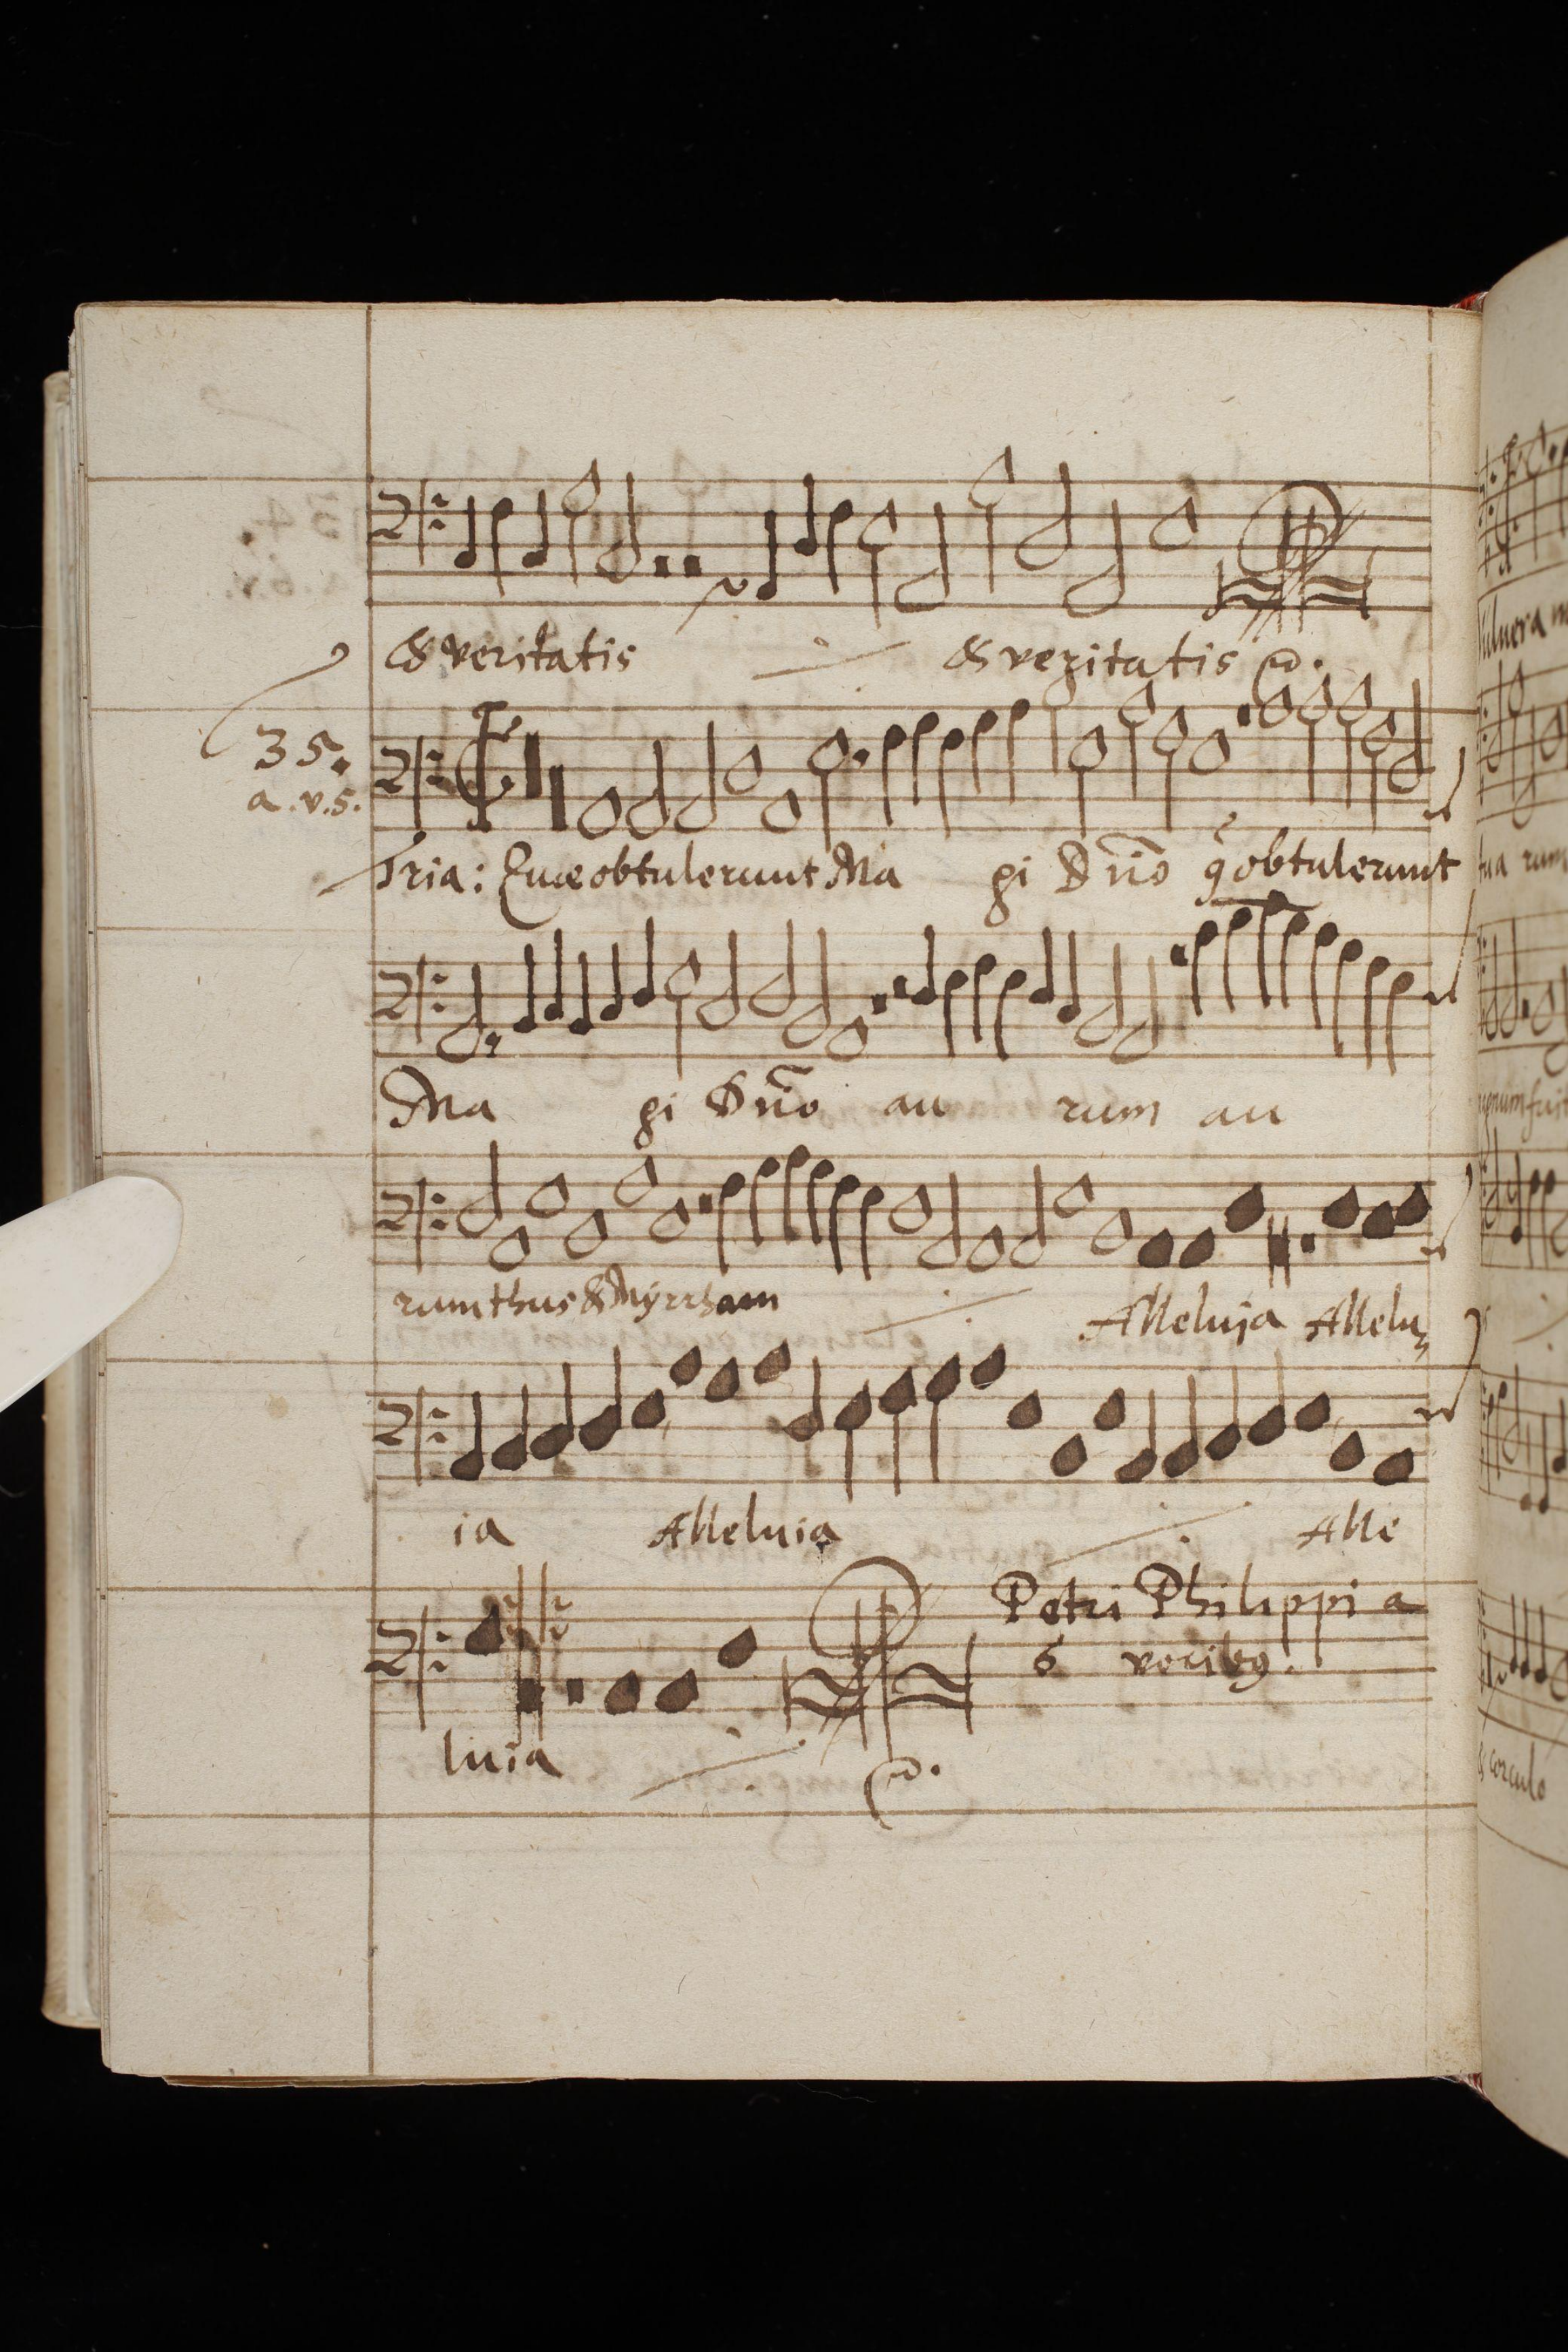 & veritatis & veritatis
35.
a.v.5.
Tria: Quæ obtulerunt Ma gi Dño q̃ obtulerunt
Ma gi Dño au rum au
rum thus & Myrrham Alleluja Allelu
ia Alleluia Alle
Petri Philippi a
6 vocibꝯ.
luia
Vulnera
corculo